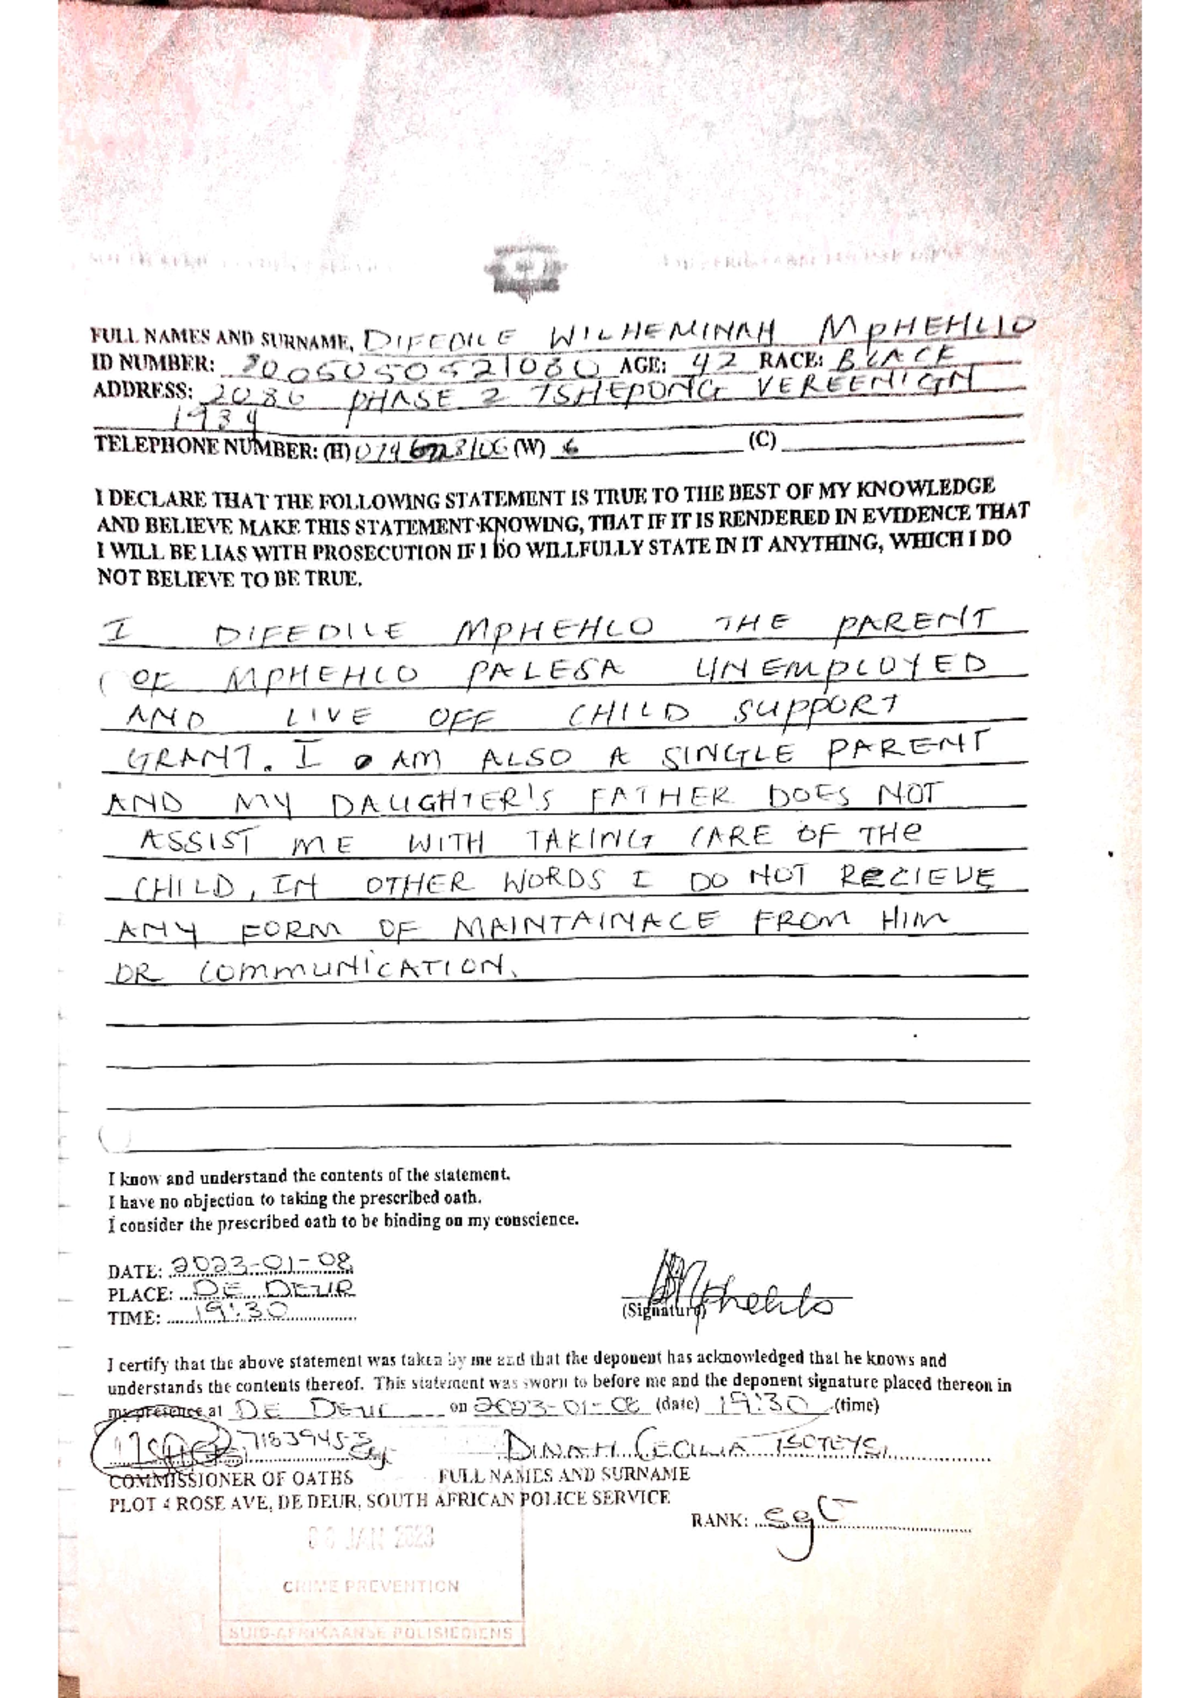 FULL NAMES AND SURNAME, DIFEDILE WILHEMINAH MPHEHLLO
ID NUMBER: 8005050521080 AGE: 42 RACE: BLACK
ADDRESS: 2086 PHASE 2 TSHEPONG VEREENIGN
1984
TELEPHONE NUMBER: (H) (W) (C)
I DECLARE THAT THE FOLLOWING STATEMENT IS TRUE TO THE BEST OF MY KNOWLEDGE
AND BELIEVE MAKE THIS STATEMENT KNOWING, THAT IF IT IS RENDERED IN EVIDENCE THAT
I WILL BE LIAS WITH PROSECUTION IF I DO WILLFULLY STATE IN IT ANYTHING, WHICH I DO
NOT BELIEVE TO BE TRUE.
I DIFEDILE MPHEHLO THE PARENT
OF MPHEHLO PALESA UNEMPLOYED
AND LIVE OFF CHILD SUPPORT
GRANT. I AM ALSO A SINGLE PARENT
AND MY DAUGHTER'S FATHER DOES NOT
ASSIST ME WITH TAKING CARE OF THE
CHILD, IN OTHER WORDS I DO NOT RECIEVE
ANY FORM OF MAINTAINACE FROM HIM
OR COMMUNICATION.
I know and understand the contents of the statement.
I have no objection to taking the prescribed oath.
I consider the prescribed oath to be binding on my conscience.
DATE: 2023-01-08
PLACE: DE DEUR
TIME: 19:30
(Signature) Mphehlo
I certify that the above statement was taken by me and that the deponent has acknowledged that he knows and
understands the contents thereof. This statement was sworn to before me and the deponent signature placed thereon in
my presence at DE DEUR on 2023-01-08 (date) 19:30 (time)
7183945-3 Sgt DINAH CECILIA TSOTETSI
COMMISSIONER OF OATHS FULL NAMES AND SURNAME
PLOT 4 ROSE AVE, DE DEUR, SOUTH AFRICAN POLICE SERVICE
RANK: Sgt
JAN 2023
CRIME PREVENTION
SUID-AFRIKAANSE POLISIEDIENS